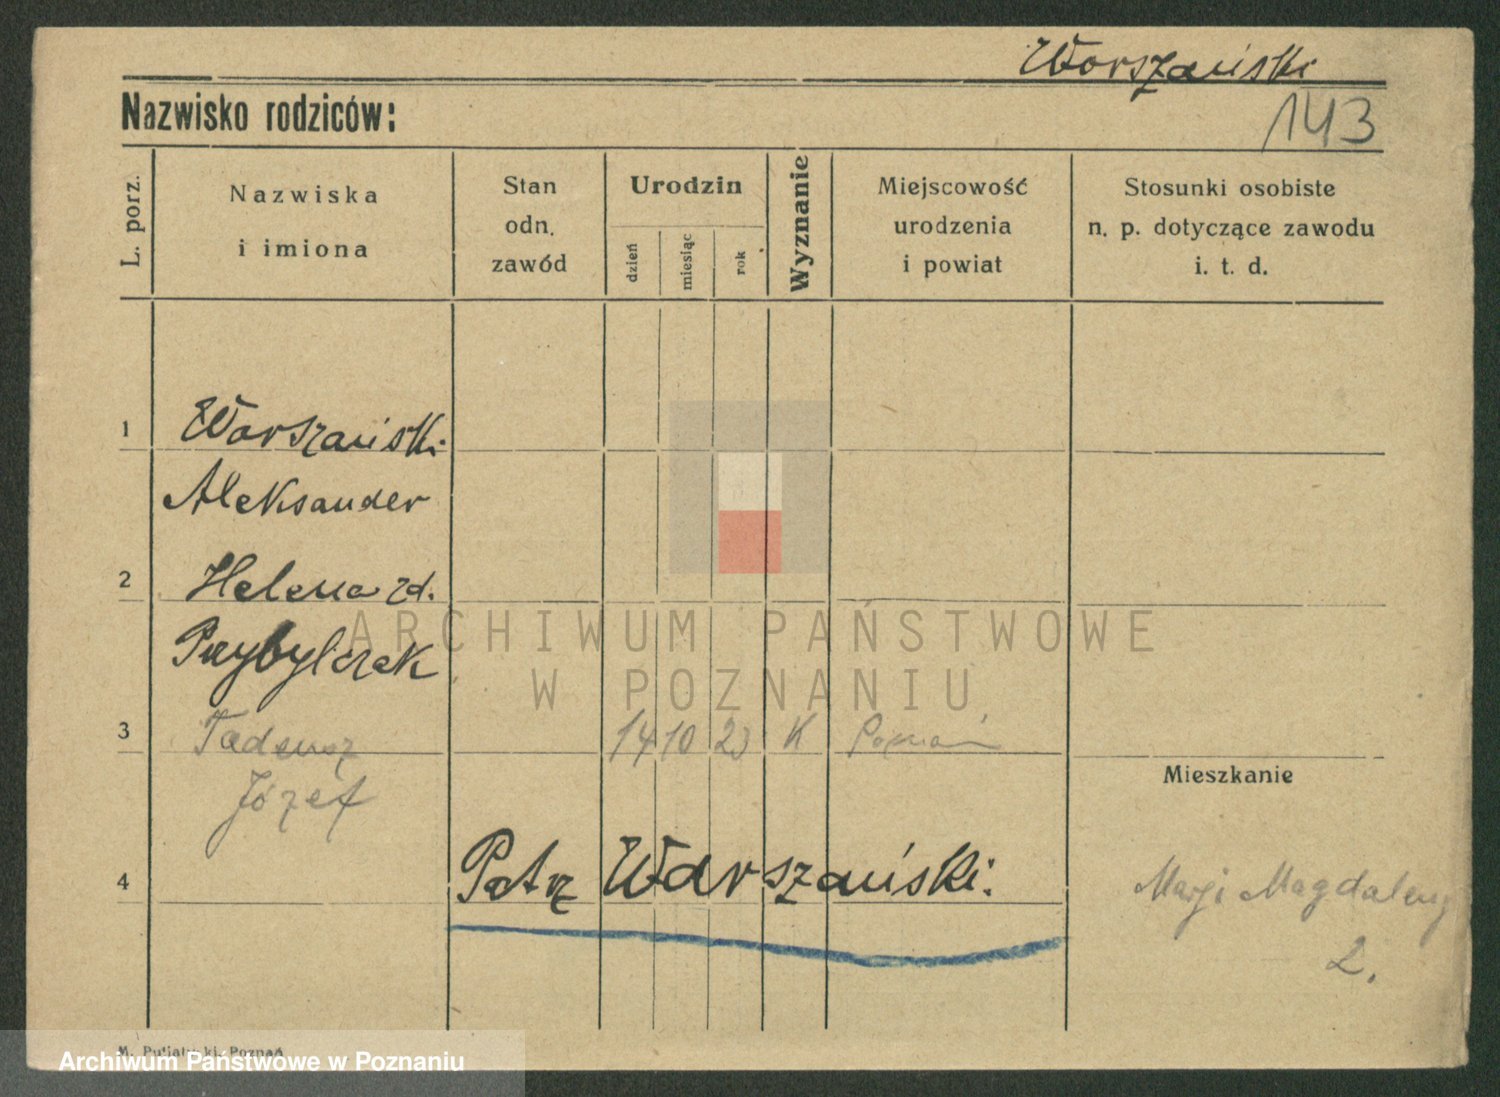 Worszański
Nazwisko rodziców:
143
L. porz.
Nazwiska
i imiona
Stan
odn.
zawód
Urodzin
dzień
miesiąc
rok
Wyznanie
Miejscowość
urodzenia
i powiat
Stosunki osobiste
n. p. dotyczące zawodu
i. t. d.
1 Worszański
Aleksander
2 Helena zd.
Przybylczak
3 Tadeusz 14 10 23 K Poznań
Józef
Mieszkanie
4 Patrz Warszański.
Marji Magdaleny
2.
M. Putiatycki, Poznań
Archiwum Państwowe w Poznaniu
ARCHIWUM PAŃSTWOWE
W POZNANIU